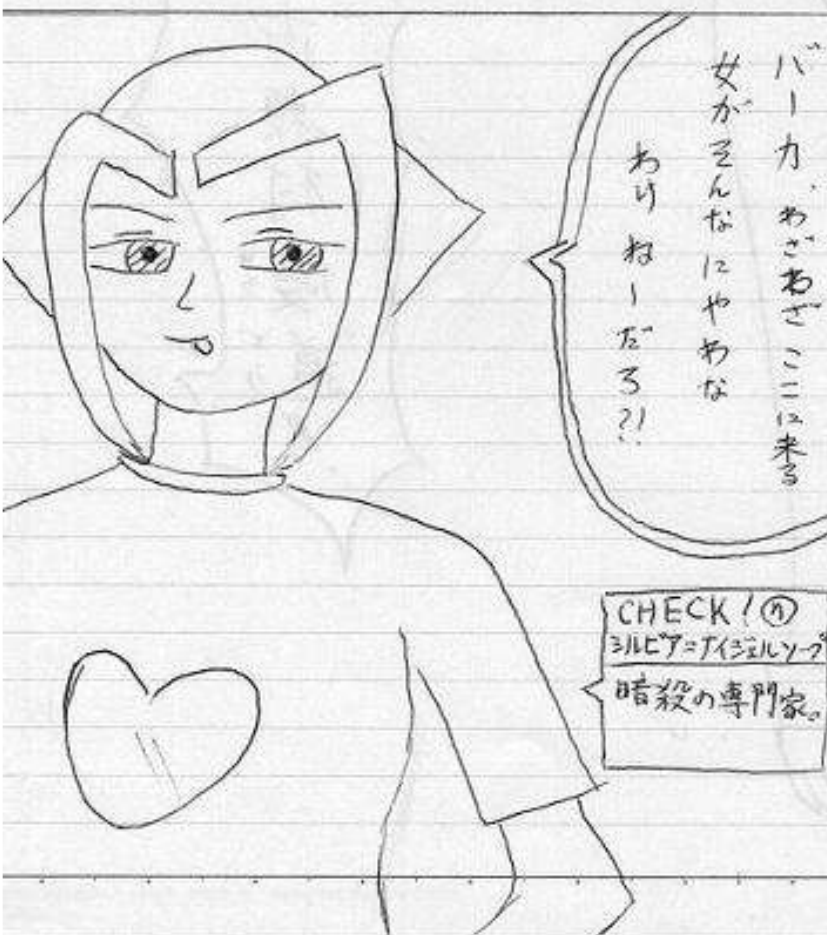 バーカ、わざわざここに来る
女がそんなにやわな
わけねーだろ?!
CHECK!㋤
シルビア=ナイジェルソープ
暗殺の専門家。